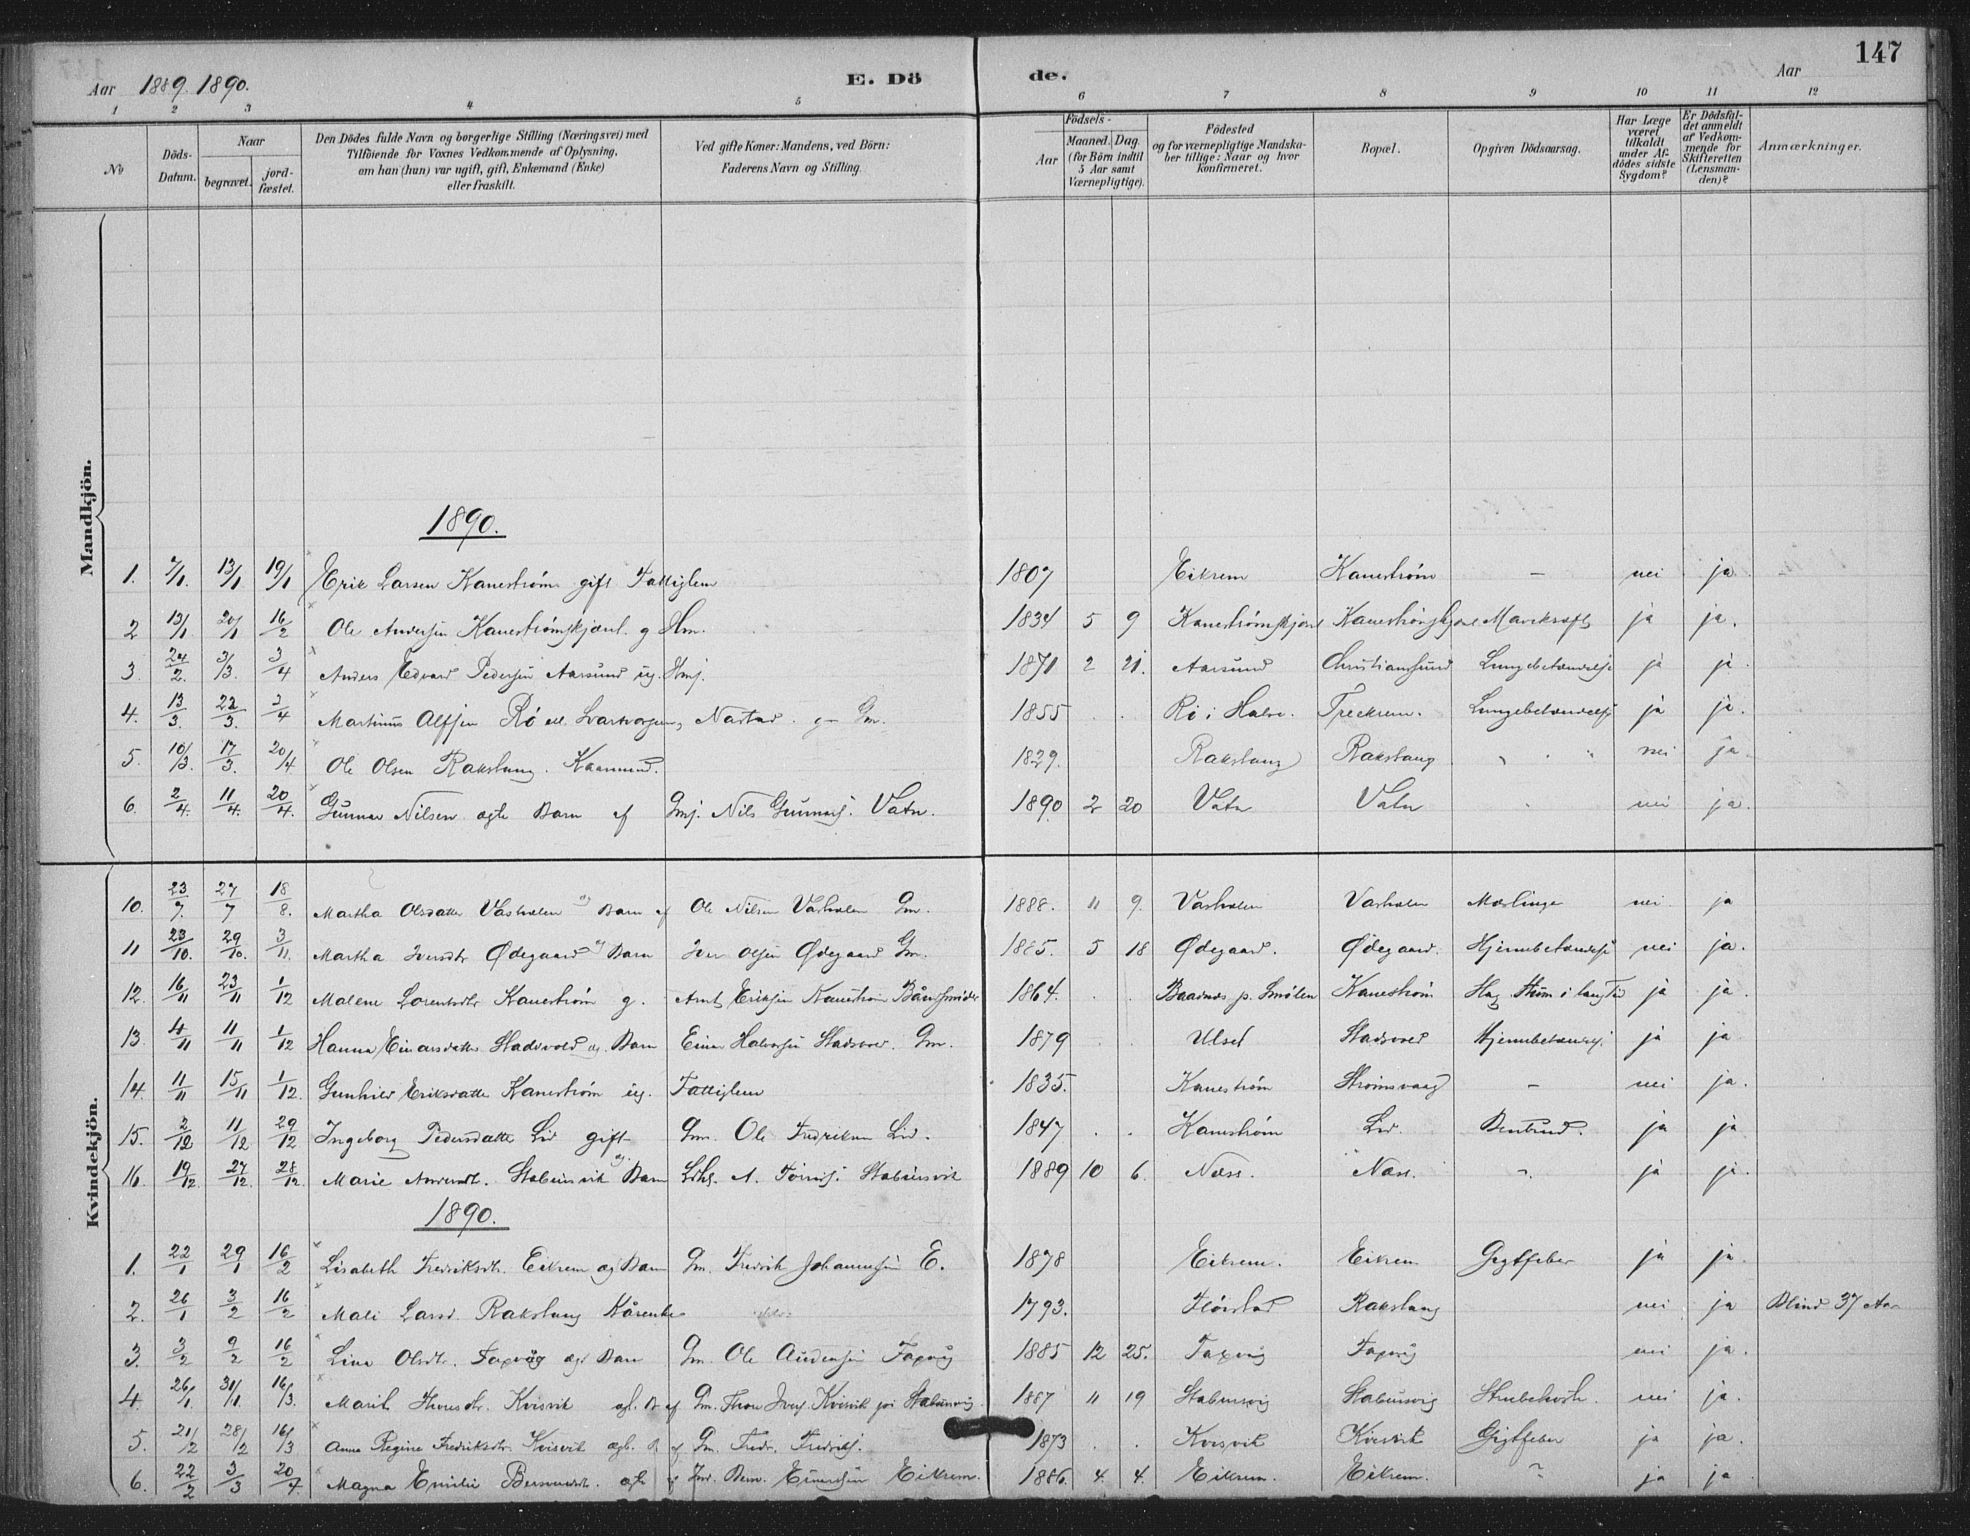 147
Aar 1889. 1890.
E. Dö de.
Aar
1 2 3 4 5 6 7 8 9 10 11 12
No
Döds-Datum.
Naar
begravet.
jord-fæstet.
Den Dödes fulde Navn og borgerlige Stilling (Næringsvei) med
Tilföiende for Voxnes Vedkommende af Oplysning,
om han (hun) var ugift, gift, Enkemand (Enke)
eller fraskilt.
Ved gifte Koner: Mandens, ved Börn:
Faderens Navn og Stilling.
Födsels-
Aar
Maaned. Dag.
(for Börn indtil
5 Aar samt
Værnepligtige).
Födested
og for værnepligtige Mandska-
ber tillige: Naar og hvor
konfirmeret.
Bopæl.
Opgiven Dödsaarsag.
Har Læge
været
tilkaldt
under Af-
dödes sidste
Sygdom?
Er Dödsfal-
det anmeldt
af Vedkom-
mende for
Skifteretten
(Lensman-
den)?
Anmærkninger.
Mandkjön.
1890.
1. 7/1. 13/1 19/1 Erik Larsen Kanestrøm gift Fattiglem 1807 Eikrem Kanestrøm – nei ja
2 13/1 20/1 16/2 Ole Andersen Kanestrømskjæret g Hm. 1834 5 9 Kanestrømskjæret Kanestrømskjæret Marekraft ja ja.
3. 24/2. 3/3. 3/4 Anders Edvard Pedersen Aarsund ug. Hmj. 1871 2 21. Aarsund Christiansund Lungebetændelse ja ja
4. 13/3. 22/3. 3/4 Martinus Alfsen Rø Nastad g Gm. 1855 Rø i Halse. Treekrem. Lungebetændelse ja ja.
5. 10/3. 17/3. 20/4 Ole Olsen Rakstang. Kaarmand. 1829. Rakstang Rakstang nei ja
6. 2/4. 11/4. 20/4. Gunnar Nilsen ægte Barn af Gmj. Nils Gunnarsj. Vatn. 1890 2 20 Vatn Vatn nei ja.
Kvindekjön.
10. 23/7. 27/7 18/8. Martha Olsdatter Vasholen Barn af Ole Nilsen Vasholen Gm. 1888. 11 9. Vasholen Vasholen Mæslinge nei ja
11 23/10. 29/10. 3/11. Martha Iversdtr Ødegaard Barn Iver Olsen Ødegaard Gm. 1885. 5 18 Ødegaard. Ødegaard. Hjernebetændelse nei ja.
12. 16/11 23/11 1/12 Malene Lorentsdtr Kanestrøm g. Arnt Eriksen Kanestrøm 1864. Baadnes p. Smølen Kanestrøm ja ja.
13. 4/11 11/11 1/12 Hanna Einarsdatter Stadsvold æg. Barn Einar Halvorsen Stadsvold. Gm. 1879 Ulset Stadsvold Hjernebetændelse. ja ja
14. 11/11 15/11 1/12. Gunhild Eriksdatter Kanestrøm ug. Fattiglem 1835. Kanestrøm Strømsvaag – nei ja.
15. 2/12. 11/12 29/12 Ingeborg Pedersdatter Lid gift Gm. Ole Fredriksen Lid. 1847 Kanestrøm Lid. ja ja
16. 19/12 27/12. 28/12 Marie Stabursvik æg. Barn A. Stabursvik 1889 10 6. Næss. Næss. ja ja.
1890.
1. 22/1 29/1 16/2 Lisabeth Fredriksdtr. Eikrem æg Barn Gm. Fredrik Johannesen E. 1878 Eikrem. Eikrem Gigtfeber ja ja.
2. 26/1 3/2 16/2 Mali Larsd. Rakstang Kårenke 1793. Fløistad Rakstang nei ja Blind 37 Aar
3. 3/2 9/2 16/2 Lina Olsdtr. Faxvåg ægt Barn Gm. Ole Andersen Faxvåg 1885 12 25. Faxvåg Faxvåg nei ja.
4. 26/1. 31/1. 16/3. Marit Thoresdtr. Kvisvik ægt. B af Gm. Thore Kvisvik paa Stabursvig 1887 11 19 Stabursvig Stabursvig Strubehoste. nei ja.
5. 21/2 28/2 16/3 Anne Regine Fredriksdtr. Kvisvik ægt. B af Gm. Fredr. Fredriksj. 1873 Kvisvik Kvisvik Gigtfeber ja ja.
6. 22/2 3/3 20/4 Magna Emilie ægt. af Einarsen Eikrem. 1886. 4. 4. Eikrem. Eikrem. ? ja ja